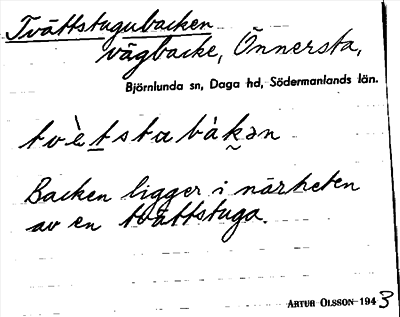 Tvättstugubacken
vägbacke, Önnersta,
Björnlunda sn, Daga hd, Södermanlands län.
tvètstabàkən
Backen ligger i närheten
av en tvättstuga.
ARTUR OLSSON 1943